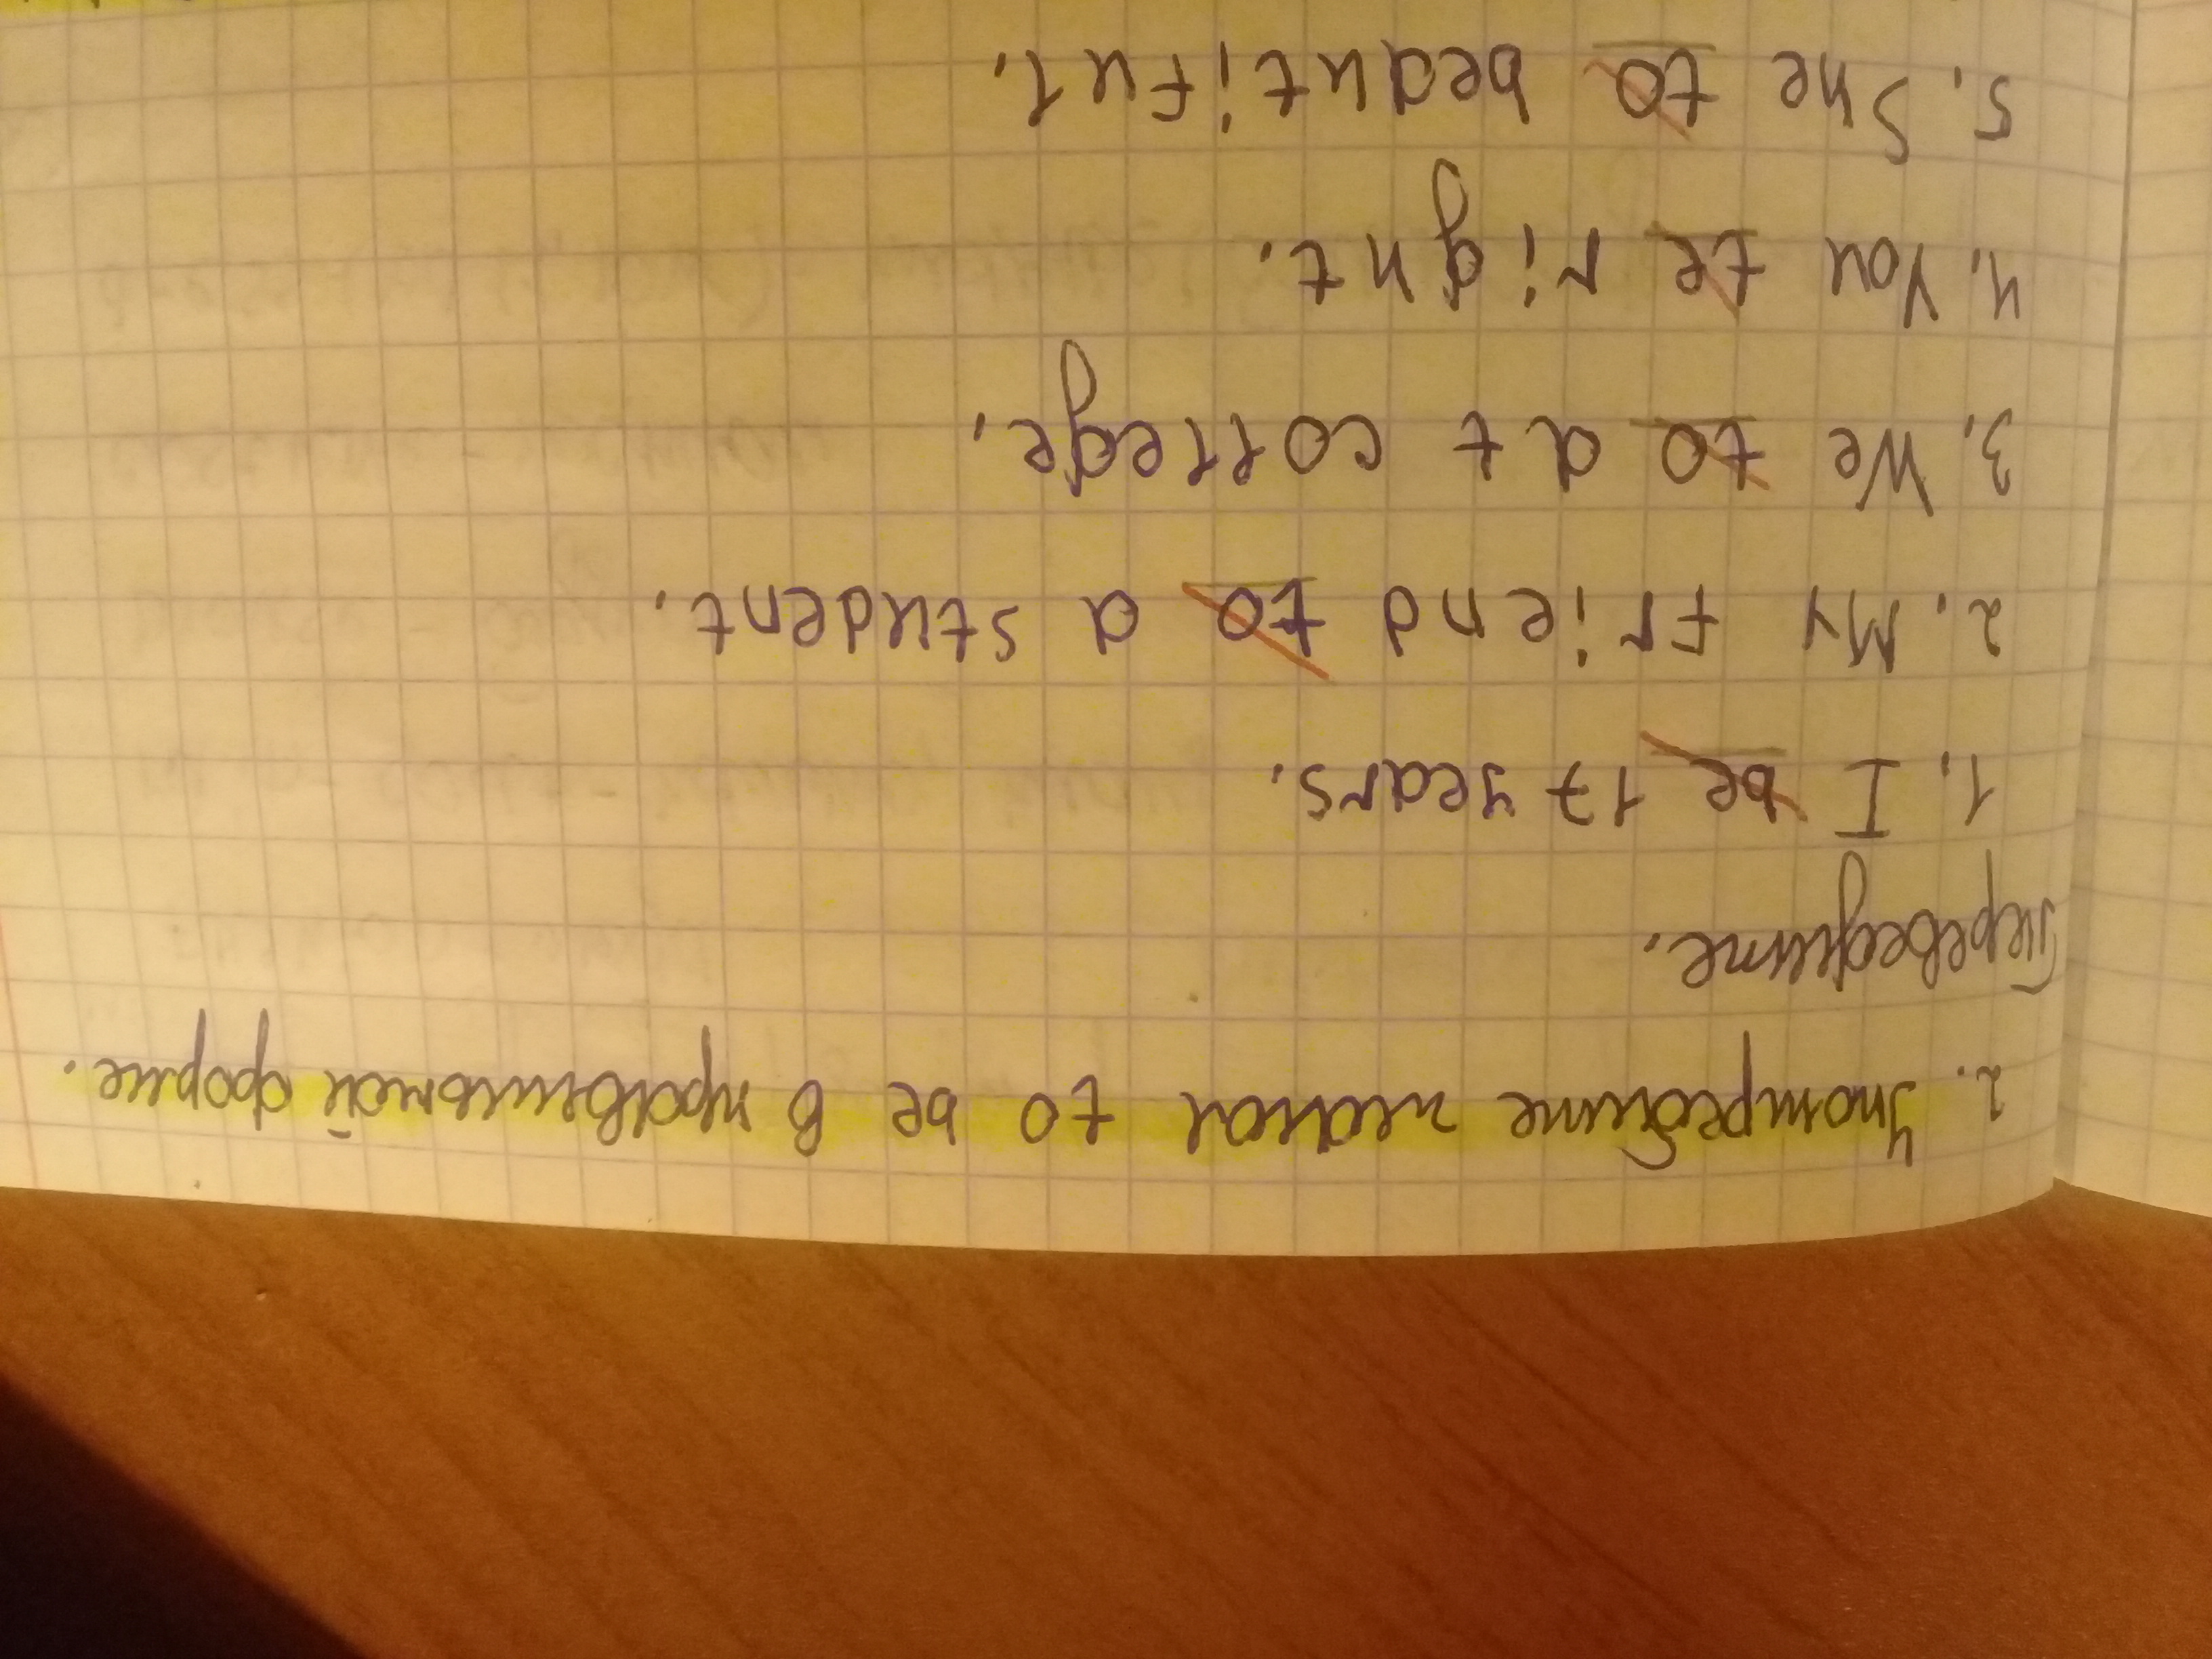 2. Употребите глагол to be в правильной форме.
Переведите.
1. I be 17 years.
2. My friend to a student.
3. We to at college.
4. You te right.
5. She to beautiful.